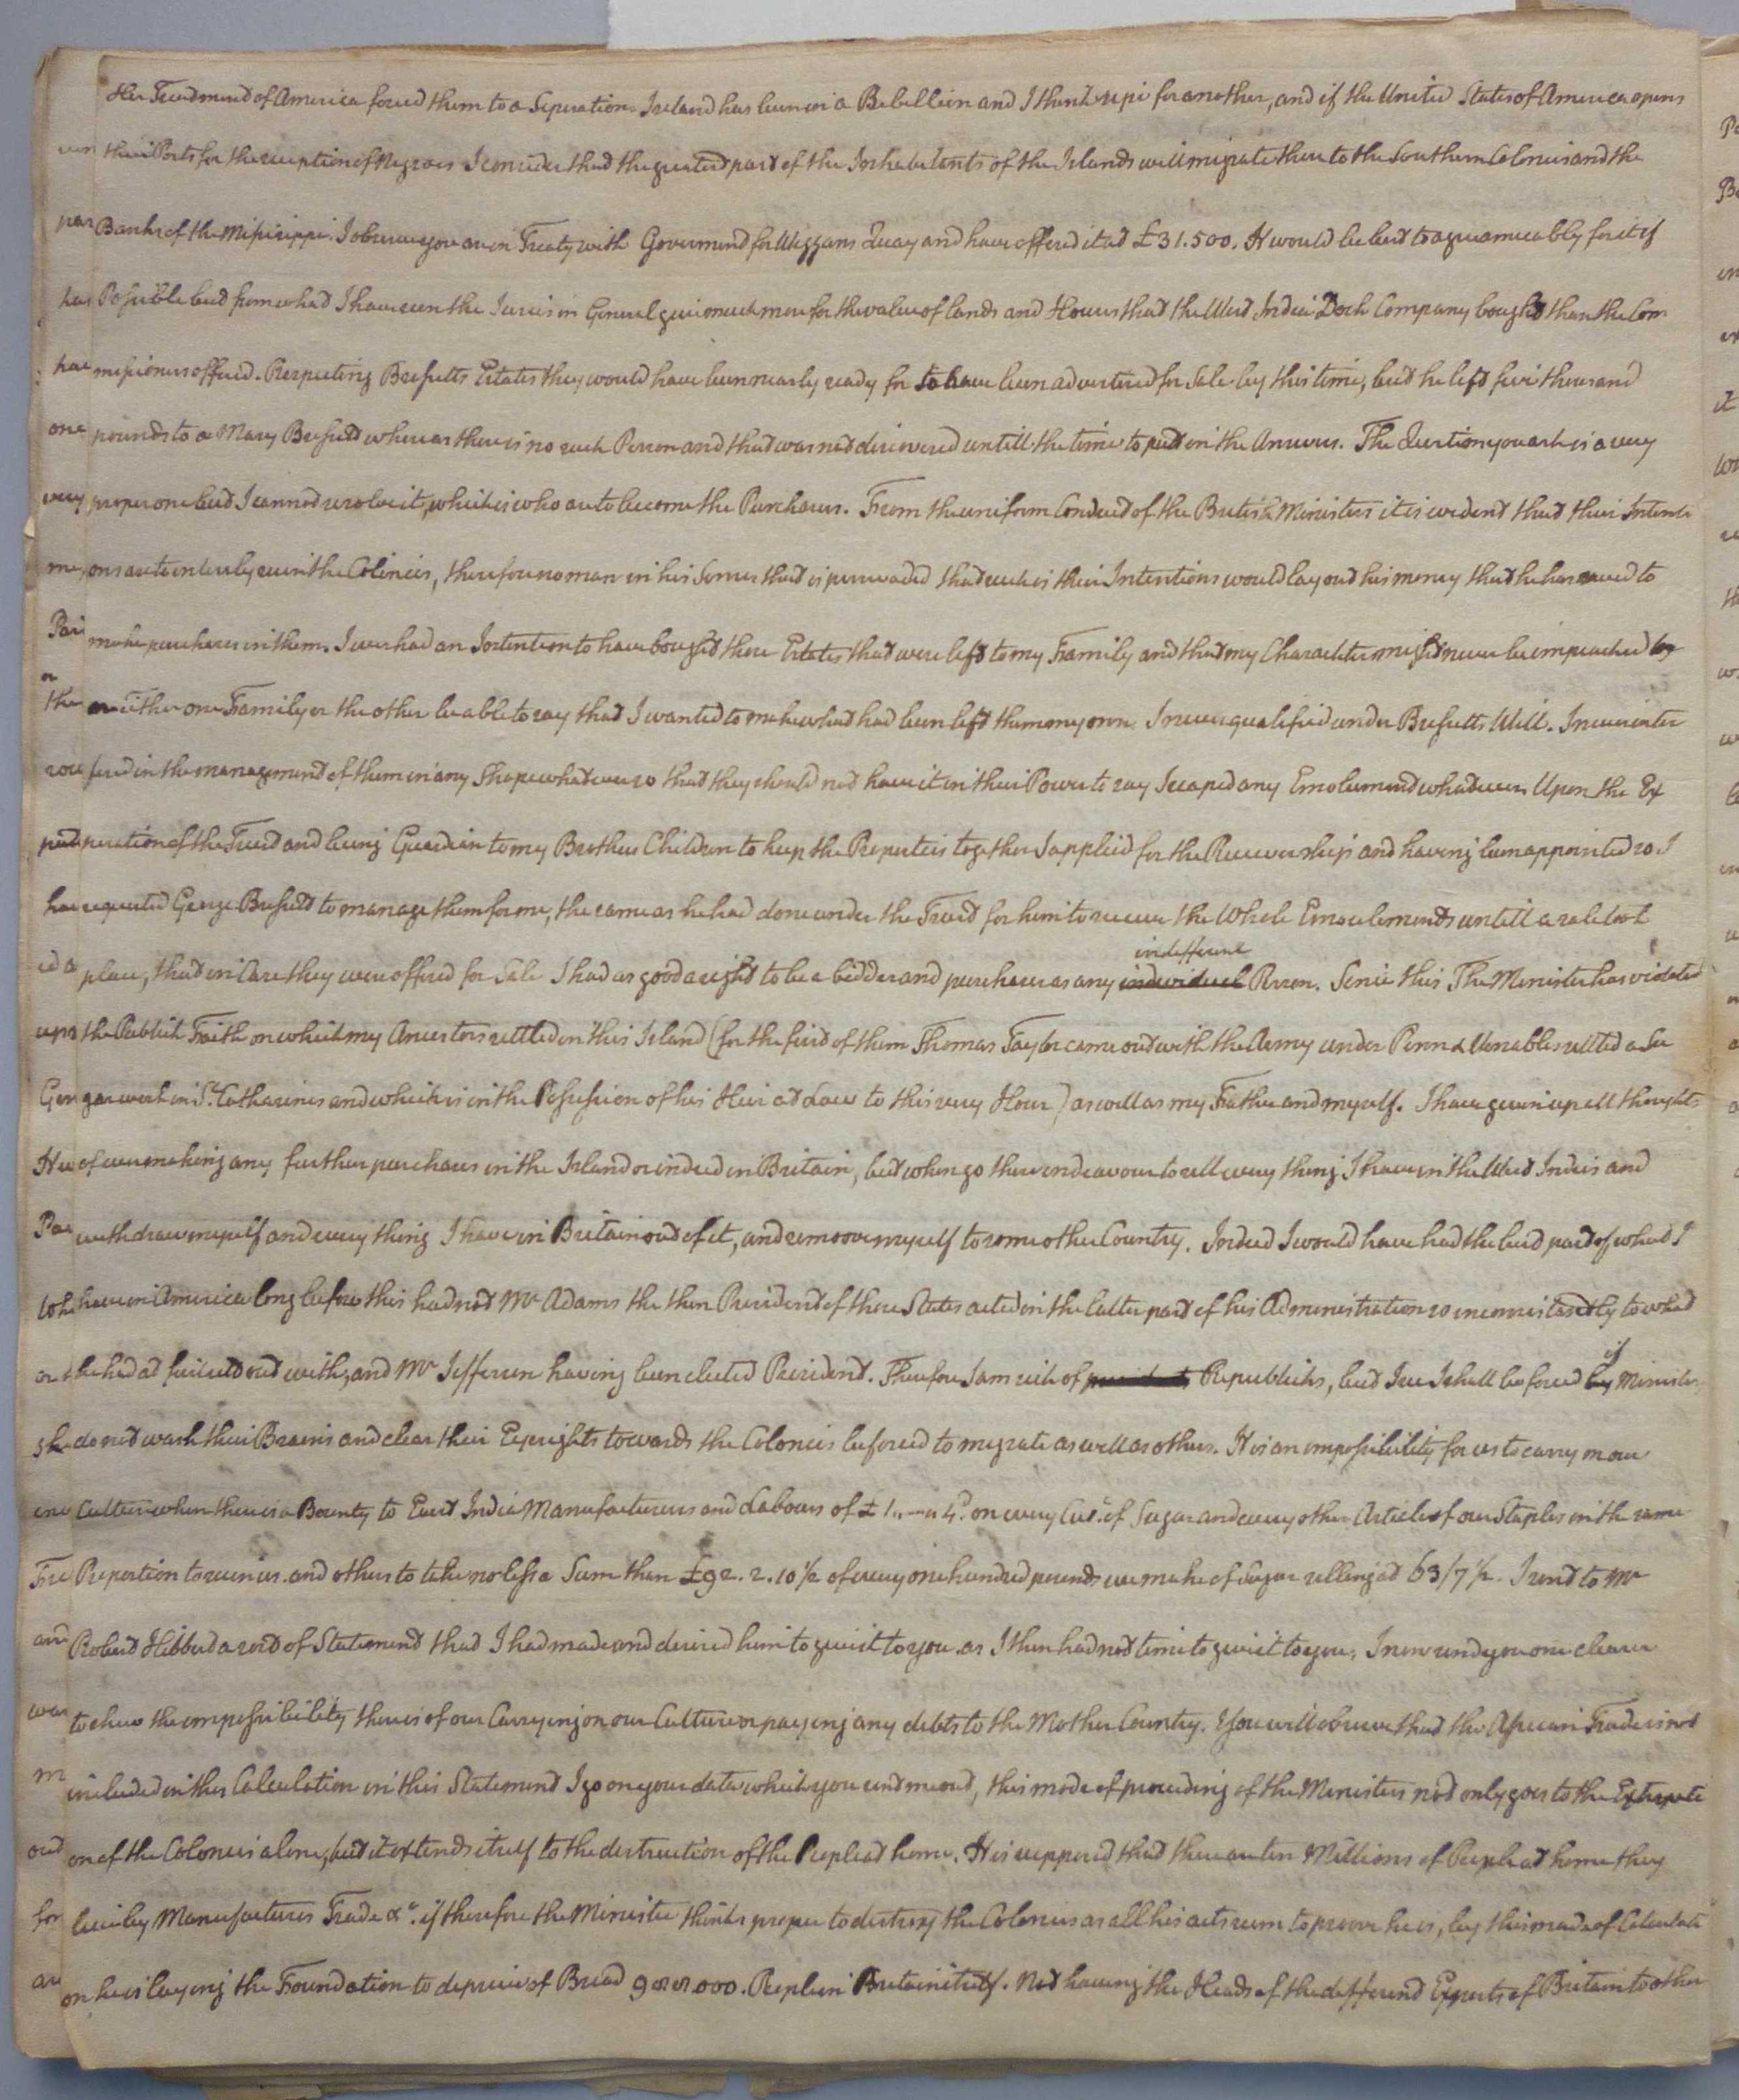 Her Treadmend of America forced them to a Seperation. Ireland has been in a Rebellion and I think ripe for another, and if the United States of America opens
their Ports for the reception of Negroes I consider thad the greatest part of the Inhabitants of the Islands will migrate there to the Southern Colonies and the
Banks of the Misisippi. I observe you are in Treaty with Govermend for Wiggans Quay and have offered it ad £31.500. It would be best to agree amicably for it if
Possible bud from whad I have seen the Juries in General give much more for the value of lands and Houses thad the West India Dock Company bought than the Com
missioners offered. Respecting Breſsetts Estates they would have been nearly ready for to have been advertized for Sale by this time, bud he left five thousand
pounds to a Mary Breſsett whereas there is no such Person and thad was nod discovered untill the time to put in the Answers. The Question you ask is a very
proper one bud I cannod resolve it, which is who are to become the Purchasers. From the uniform Conduct of the British Ministers it is evident thad their Intenti
ons are to entirely ruin the Colinies, therefore no man in his Senses thad is perswaded thad such is their Intentions would lay oud his money thad he has saved to
make purchases in them. I ever had an Intention to have bought those Estates thad were left to my Family and thad my Charackter might never be impeached by
or either one Family or the other be able to say thad I wanted to make whad had been left them my own. I never qualified under Breſsetts Will. I never inter
fered in the management of them in any Shape whatever so thad they should nod have it in their Power to say I reaped any Emolumend whatever. Upon the Ex
peration of the Trust and being Guardian to my Brothers Children to keep the Properties together I applied for the Receivership and having been appointed so. I
requested George Breſsett to manage them for me, the same as he had done under the Trust for him to receive the Whole Emoulements untill a sale took
place, thad in Case they were offered for Sale I had as good a right to be a bidder and purchaser as any individual indifferent Person. Since this The Minister has violated
the Publick Faith on which my Ancestors settled in this Island (for the first of them Thomas Taylor came oud with the Army under Penn & Venables settled a Su
gar work in St. Catharines and which is in the Poſseſsion of his Heir ad Law to this very Hour) as well as my Father and myself. I have given up all thoughts
of ever making any further purchases in the Island or indeed in Britain, bud when go there endeavour to sell every thing I have in the West Indies and
withdraw myself and every thing I have in Britain oud of it, and remoove myself to some other Country. Indeed I would have had the best part of whad I
have in America long before this had nod Mr Adams the then President of those States acted in the latter part of his Administration so inconsistantly to whad
he had ad first sett oud with, and Mr Jefferson having been elected President. Therefore I am sick of Republicks, bud I see I shall be forced by if Ministers
do nod wash their Brains and clear their Eyesights towards the Colonies be forced to migrate as well as others. It is an impoſsibility for us to carry on our
Culture when there is a Bounty to East India Manufacturers and Labours of £1..—..4d. on every Cwt. of Sugar and every other Article of our Staples in the same
Proportion to ruin us. and others to take no leſs a Sum than £92.2.10½ of every one hundred pounds we make of Sugar selling ad 63/7½. I send to Mr
Robert Hibbert a sort of Statemend thad I had made and desired him to give it to you as I then had nod time to give it to you. I now send you one clearer
to shew the impoſsibility there is of our Carrying on our Culture or paying any debts to the Mother Country. You will observe thad the African Trade is nod
included in this Calculation in this Statemend I go on your data which you send me oud, this mode of proceeding of the Ministers nod only goes to the Extirpati
on of the Colonies alone, bud it extends itself to the destruction of the People ad home. It is supposed thad there are ten Millions of People ad home they
live by Manufactures Trade &c. if therefore the Minister thinks proper to destroy the Colonies as all his acts seem to proove he is, by this mode of Calculati
on he is laying the Foundation to deprive of Bread .000. People in Britain itself. Nod having the Heads of the differend Exports of Britain to other